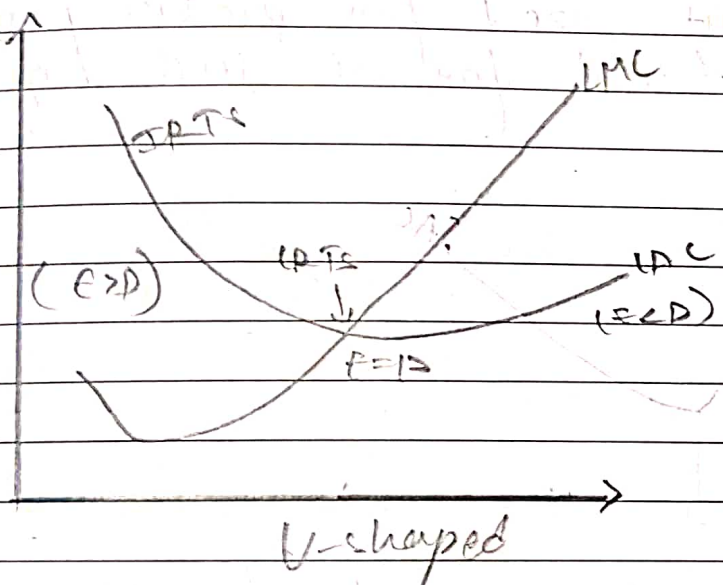 LMC
IRTS
CRTS
LAC
(E>D)
(E<D)
E=D
U-shaped